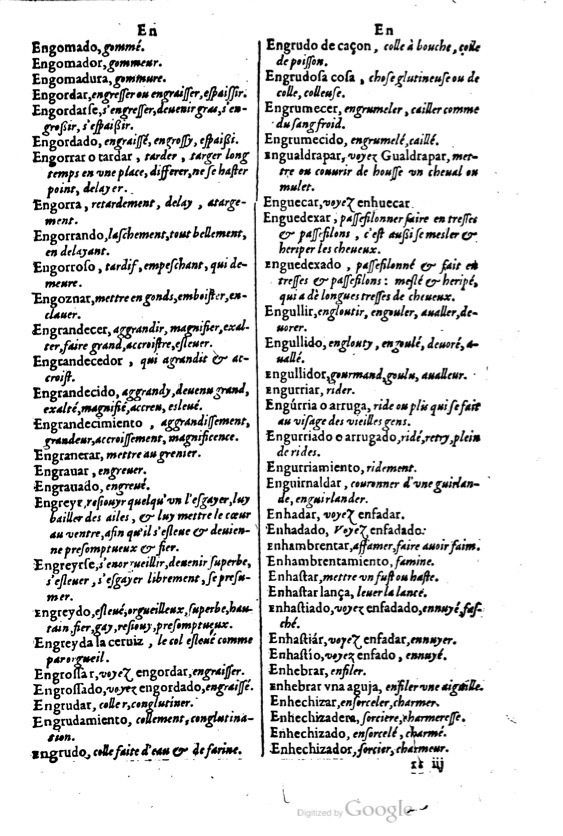 En
Engomado, gommé.
Engomador, gommeur.
Engomadura, gommure.
Engordar, engresser ou engraisser, espaissir.
Engordarse, s'engresser, deuenir gras, s'en-
grossir, s'espaißir.
Engordado, engraissé, engrossy, espaißi.
Engorrar o tardar, tarder, targer long
temps en vne place, differer, ne se haster
point, delayer.
Engorra, retardement, delay, atarge-
ment.
Engorrando, laschement, tout bellement,
en delayant.
Engorroso, tardif, empeschant, qui de-
meure.
Engoznar, mettre en gonds, emboister, en-
clauer.
Engrandecer, aggrandir, magnifier, exal-
ter, faire grand, accroistre, esleuer.
Engrandecedor, qui agrandit & ac-
croist.
Engrandecido, aggrandy, deuenu grand,
exalté, magnifié, accreu, esleué.
Engrandecimiento, aggrandissement,
grandeur, accroissement, magnificence.
Engranerar, mettre au grenier.
Engrauar, engreuer.
Engrauado, engreué.
Engreyr, resiouyr quelqu'vn l'esgayer, luy
bailler des ailes, & luy mettre le cœur
au ventre, afin qu'il s'esleue & deuien-
ne presomptueux & fier.
Engreyrse, s'enorgueillir, deuenir superbe,
s'esleuer, s'esgayer librement, se presu-
mer.
Engreydo, esleué, orgueilleux, superbe, hau-
tain, fier, gay, resiouy, presomptueux.
Engreyda la ceruiz, le col esleué comme
par orgueil.
Engrossar, voyez engordar, engraisser.
Engrossado, voyez engordado, engraissé.
Engrudar, coller, conglutiner.
Engrudamiento, collement, conglutina-
tion.
Engrudo, colle faite d'eau & de farine.
En
Engrudo de caçon, colle à bouche, colle
de poisson.
Engrudosa cosa, chose glutineuse ou de
colle, colleuse.
Engrumecer, engrumeler, cailler comme
du sang froid.
Engrumecido, engrumelé, caillé.
Engualdrapar, voyez Gualdrapar, met-
tre ou couurir de housse vn cheual ou
mulet.
Enguecar, voyez enhuecar.
Enguedexar, passefilonner faire en tresses
& passefilons, c'est außi se mesler &
heriper les cheueux.
Enguedexado, passefilonné & fait en
tresses & passefilons: meslé & heripé,
qui a dè longues tresses de cheueux.
Engullir, engloutir, engouler, aualler, de-
uorer.
Engullido, englouty, engoulé, deuoré, a-
uallé.
Engullidor, gourmand, goulu, aualleur.
Engurriar, rider.
Engúrria o arruga, ride ou plis qui se fait
au visage des vieilles gens.
Engurriado o arrugado, ridé, retry, plein
de rides.
Engurriamiento, ridement.
Enguirnaldar, couronner d'vne guirlan-
de, enguirlander.
Enhadar, voyez enfadar.
Enhadado, Voyez enfadado.
Enhambrentar, affamer, faire auoir faim.
Enhambrentamiento, famine.
Enhastar, mettre vn fust ou haste.
Enhastar lança, leuer la lance.
Enhastiado, voyez enfadado, ennuyé, fas-
ché.
Enhastiár, voyez enfadar, ennuyer.
Enhastío, voyez enfado, ennuyé.
Enhebrar, enfiler.
Enhebrar vna aguja, enfiler vne aiguille.
Enhechizar, ensorceler, charmer.
Enhechizadera, sorciere, charmeresse.
Enhechizado, ensorcelé, charmé.
Enhechizador, sorcier, charmeur.
iij
Digitized by Google